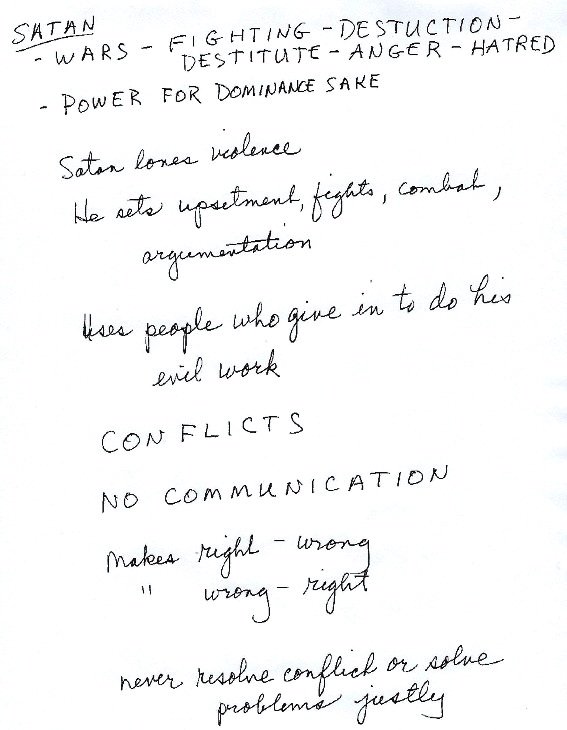 SATAN
- WARS - FIGHTING - DESTUCTION -
DESTITUTE - ANGER - HATRED
- POWER FOR DOMINANCE SAKE
Satan loves violence
He sets upsetment, fights, combat,
argumentation
Uses people who give in to do his
evil work
CONFLICTS
NO COMMUNICATION
Makes right - wrong
" wrong - right
never resolve conflict or solve
problems justly